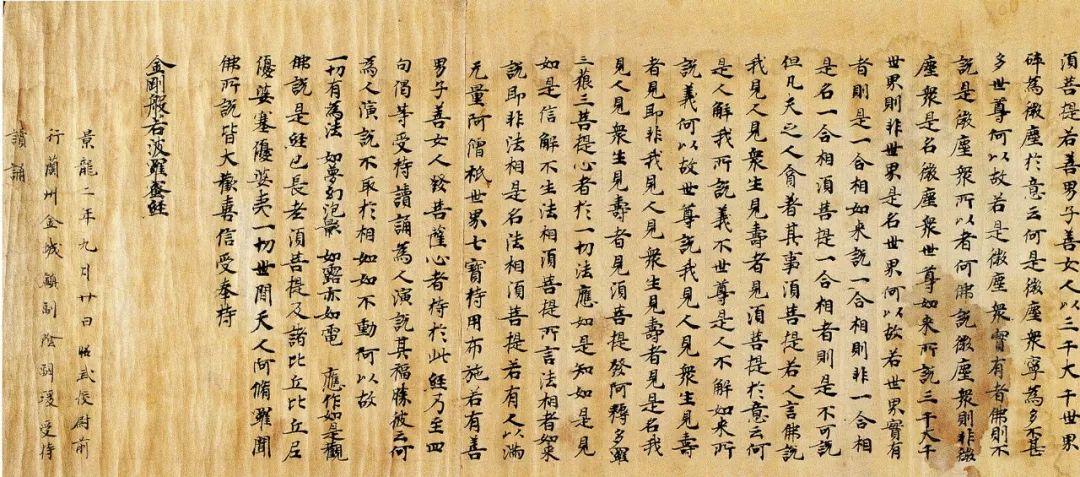 須菩提若善男子善女人以三千大千世界
碎為微塵於意云何是微塵衆寧為多不甚
多世尊何以故若是微塵衆實有者佛則不
說是微塵衆所以者何佛說微塵衆則非微
塵衆是名微塵衆世尊如來所說三千大千
世界則非世界是名世界何以故若世界實有
者則是一合相如來說一合相則非一合相
是名一合相須菩提一合相者則是不可說
但凡夫之人貪著其事須菩提若人言佛說
我見人見衆生見壽者見須菩提於意云何
是人解我所說義不世尊是人不解如來所
說義何以故世尊說我見人見衆生見壽
者見即非我見人見衆生見壽者見是名我
見人見衆生見壽者見須菩提發阿耨多羅
三藐三菩提心者於一切法應如是知如是見
如是信解不生法相須菩提所言法相者如來
說即非法相是名法相須菩提若有人以滿
无量阿僧祇世界七寶持用布施若有善
男子善女人發菩薩心者持於此經乃至四
句偈等受持讀誦為人演說其福勝彼云何
為人演說不取於相如如不動何以故
一切有為法 如夢幻泡影 如露亦如電 應作如是觀
佛說是經已長老須菩提及諸比丘比丘尼
優婆塞優婆夷一切世間天人阿脩羅聞
佛所說皆大歡喜信受奉持
金剛般若波羅蜜經
景龍二年九月廿日昭武校尉前
行蘭州金城鎮副陰嗣瑗受持
讀誦